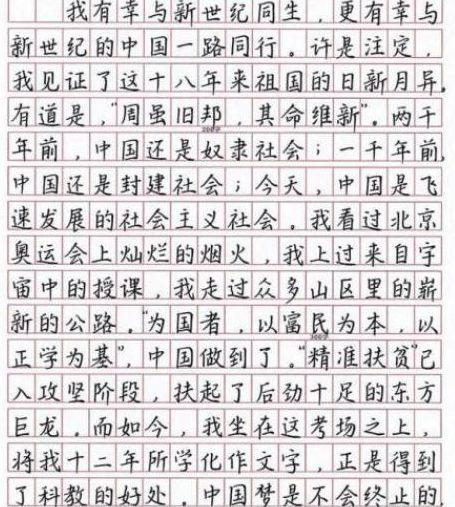 我有幸与新世纪同生，更有幸与
新世纪的中国一路同行。许是注定，
我见证了这十八年来祖国的日新月异。
有道是，“周虽旧邦，其命维新”。两千
200字
年前，中国还是奴隶社会；一千年前，
中国还是封建社会；今天，中国是飞
速发展的社会主义社会。我看过北京
奥运会上灿烂的烟火，我上过来自宇
宙中的授课，我走过众多山区里的崭
新的公路。“为国者，以富民为本，以
300字
正学为基”，中国做到了。“精准扶贫”已
入攻坚阶段，扶起了后劲十足的东方
巨龙。而如今，我坐在这考场之上，
将我十二年所学化作文字，正是得到
了科教的好处。中国梦是不会终止的，